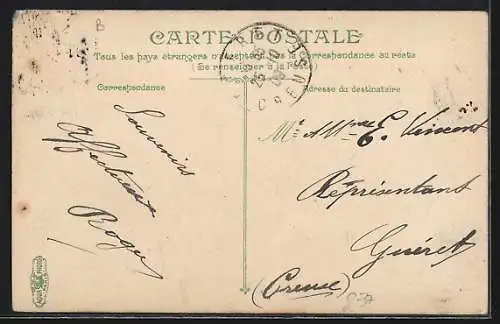 B
CARTE POSTALE
Tous les pays étrangers n'acceptent pas la Correspondance au recto
(Se renseigner à la Poste)
Correspondance
Adresse du destinataire
Souvenirs
Affectueux
Roger
Mr. & Mme E. Vincent
Représentant
Guéret
(Creuse)